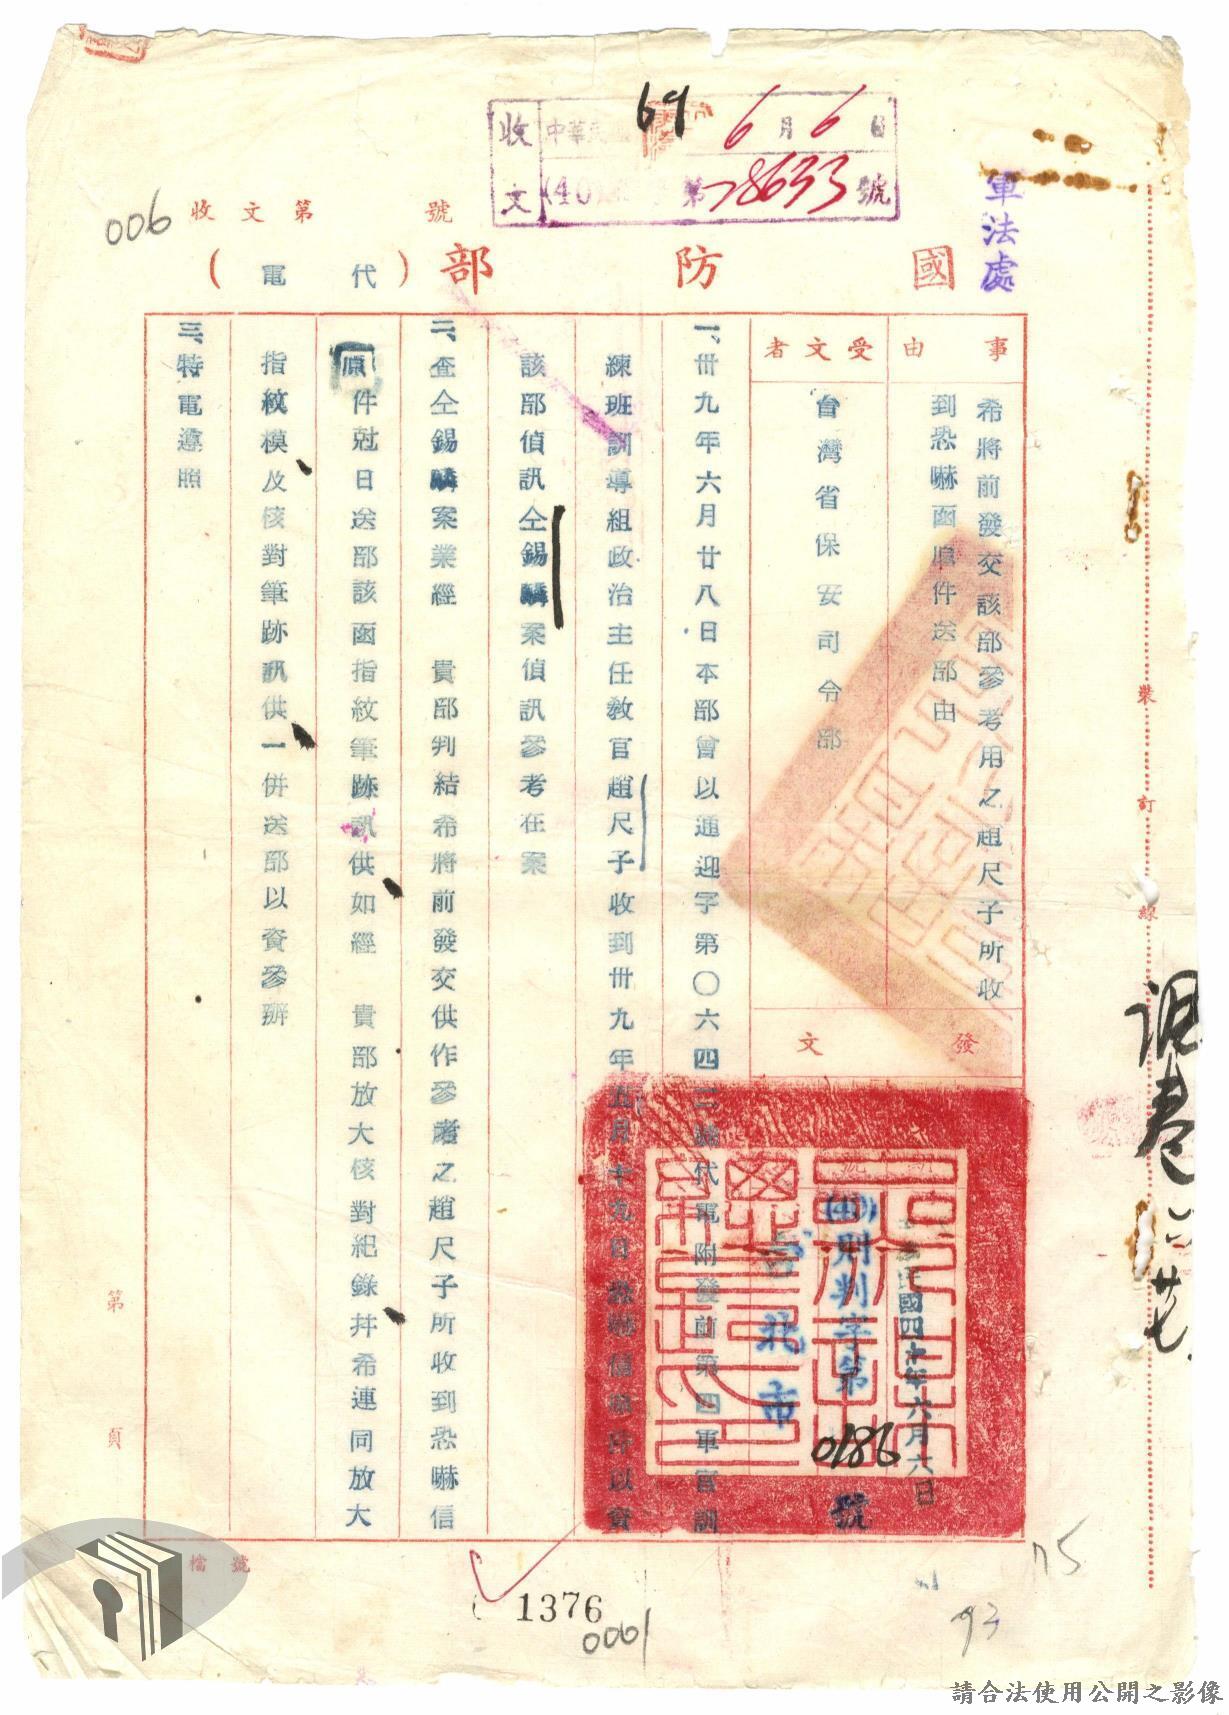 軍法處
收文
中華民 6月6日
(40) 第 78633 號
69
006
收文第 號
國防部(代電)
事由
希將前發交該部參考用之趙尺子所收
到恐嚇函原件送部由
受文者
台灣省保安司令部
發文
中華民國四十年六月六日
(40)則判字第0186號
台北市
一、卅九年六月廿八日本部曾以通迎字第〇六四二號代電附發前第四軍官訓
練班訓導組政治主任教官趙尺子收到卅九年五月十九日恐嚇信原件以資
該部偵訊仝錫麟案偵訊參考在案
二、查仝錫麟案業經 貴部判結希將前發交供作參考之趙尺子所收到恐嚇信
原件尅日送部該函指紋筆跡訊供如經 貴部放大核對紀錄并希連同放大
指紋模及核對筆跡訊供一併送部以資參辦
三、特電遵照
裝訂線
調卷
六
廿七
第 頁
檔號
1376
0061
75
93
請合法使用公開之影像